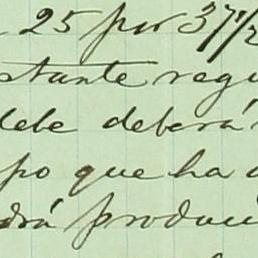 25 por 37 1/2
stante regu
debe deberá
po que ha d
drá produci